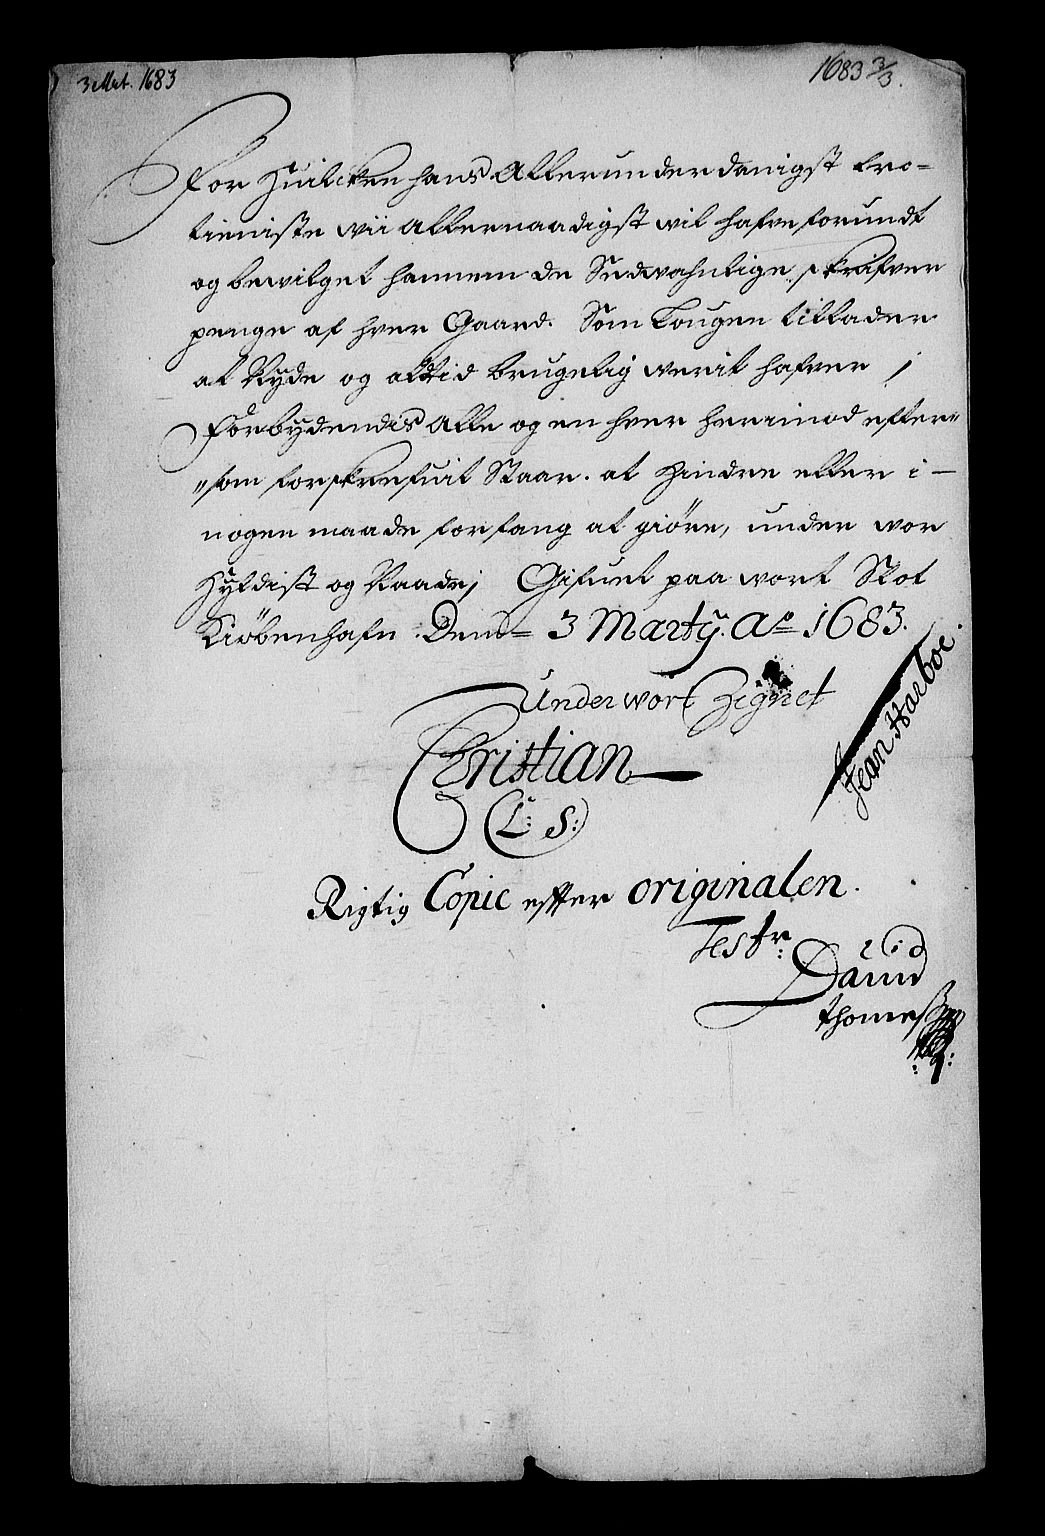 3 Mrt. 1683
1683 3/3.
For Huilcken hans Allerunderdanigst tro-
tieniste wii Allernaadigst wil hafve forundt
og bewilget hannem de Sedwahnlige skrifver
penge af hver Gaard. Som Lougen tillader
at Nyde og altid brugelig werit hafver /
Forbydendis Alle og en hver herimod efter-
"som forskrefuit Staar. at Hindre eller i -
nogen maade forfang at giöre, under wor
Hyldist og Naade; Gifuet paa wort Slot
Kiöbenhafn. Den 3 Martÿ. Ao 1683.
Under wort Zignet
Christian
(L: S:)
Jean Harboe.
Rigtig Copie effter originalen.
Test:
Dauid
Thomeß